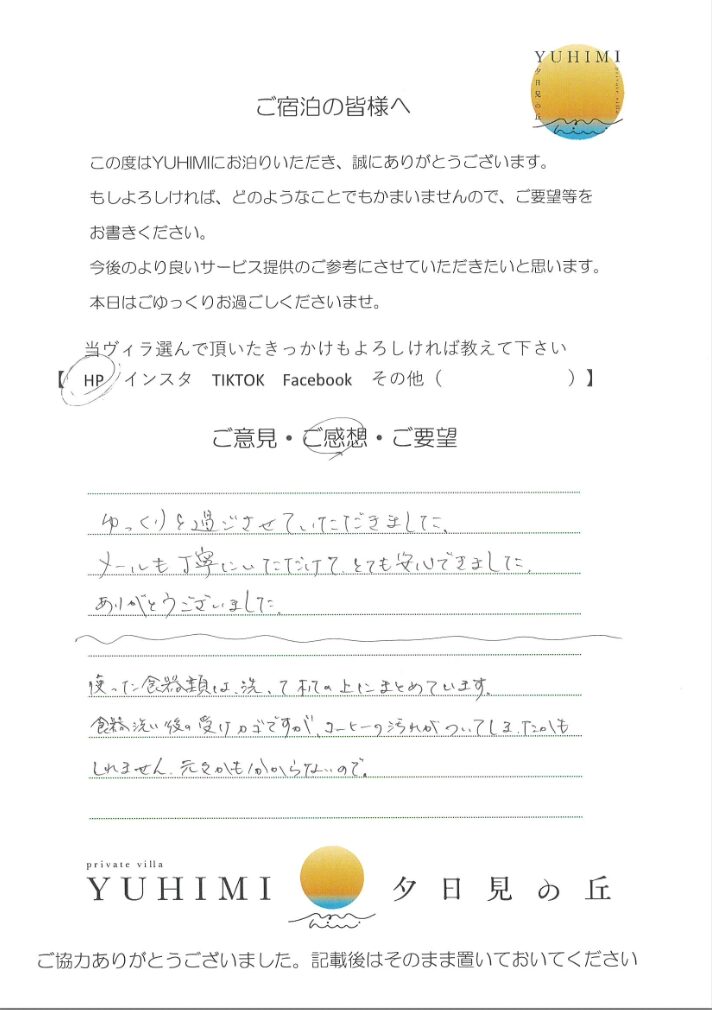 YUHIMI
夕日見の丘
private villa
ご宿泊の皆様へ
この度はYUHIMIにお泊りいただき、誠にありがとうございます。
もしよろしければ、どのようなことでもかまいませんので、ご要望等を
お書きください。
今後のより良いサービス提供のご参考にさせていただきたいと思います。
本日はごゆっくりお過ごしくださいませ。
当ヴィラ選んで頂いたきっかけもよろしければ教えて下さい
【 HP インスタ TIKTOK Facebook その他（ ）】
ご意見・ご感想・ご要望
ゆっくりと過ごさせていただきました、
メールも丁寧にいただけて、とても安心できました。
ありがとうございました。
使った食器類は、洗って机の上にまとめています。
食器洗い後の受けカゴですが、コーヒーの汚れがついてしまったかも
しれません、元々かも分からないので。
private villa
YUHIMI 夕日見の丘
ご協力ありがとうございました。記載後はそのまま置いておいてください